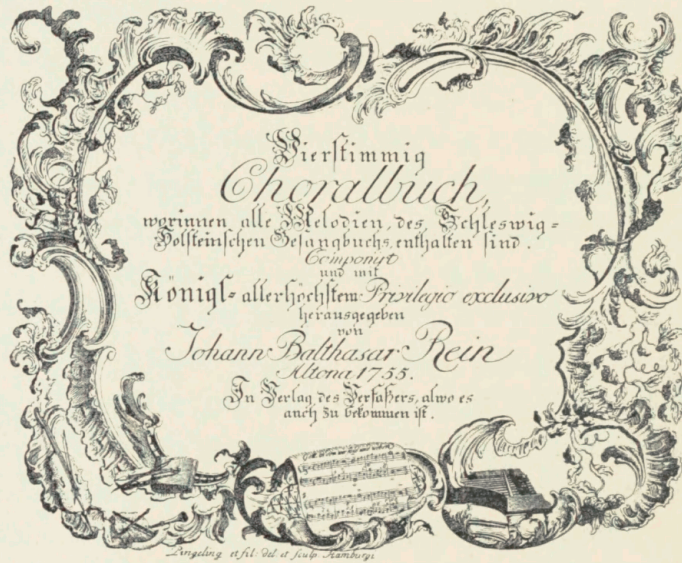 Vierstimmig
Choralbuch,
worinnen alle Melodien, des Schleswig=
Holsteinschen Gesangbuchs, enthalten sind.
Componirt
und mit
Königl= allerhöchstem Privilegio exclusivo
herausgegeben
von
Johann Balthasar Rein
Altona 1755.
In Verlag des Verfaßers, alwo es
auch zu bekommen ist.
Pingeling et fil: del. et sculp: Hamburgi